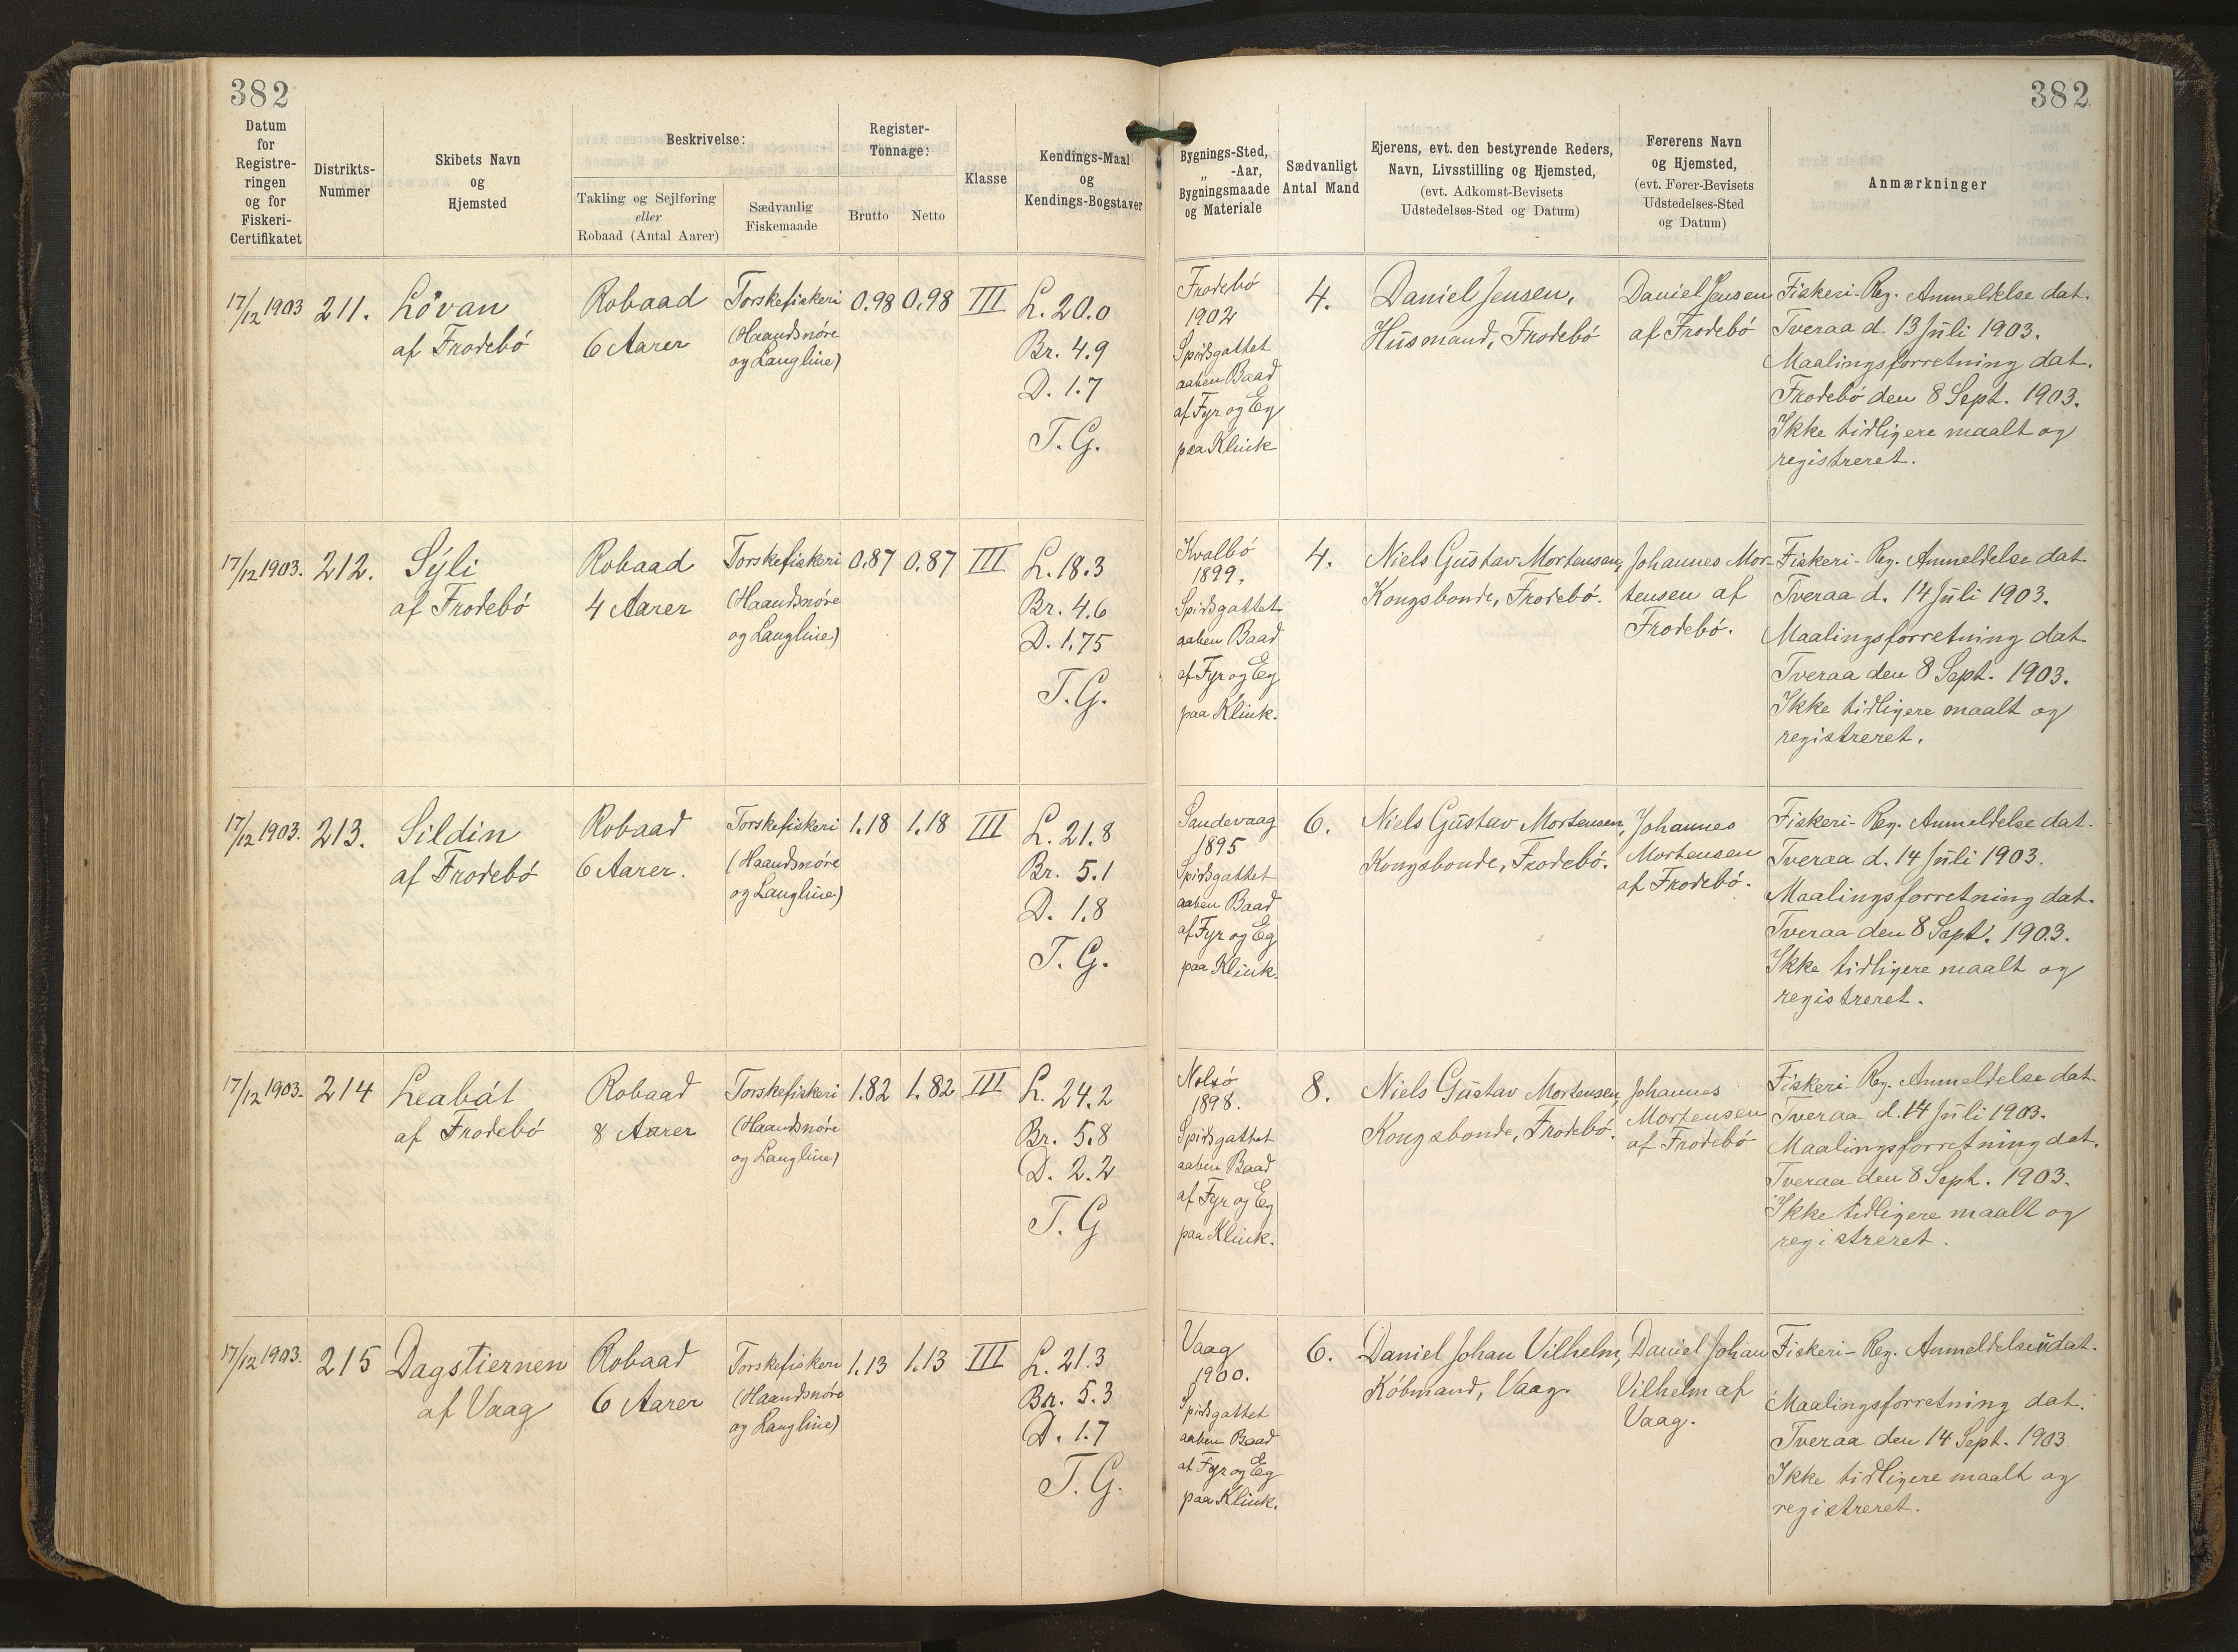 382
382
Datum
for
Registre-
ringen
og for
Fiskeri-
Certifikatet
Distrikts-
Nummer
Skibets Navn
og
Hjemsted
Beskrivelse:
Takling og Sejlføring
eller
Robaad (Antal Aarer)
Sædvanlig
Fiskemaade
Register-
Tonnage:
Brutto
Netto
Klasse
Kendings-Maal
og
Kendings-Bogstaver
Bygnings-Sted,
„ -Aar,
Bygningsmaade
og Materiale
Sædvanligt
Antal Mand
Ejerens, evt. den bestyrende Reders,
Navn, Livsstilling og Hjemsted,
(evt. Adkomst-Bevisets
Udstedelses-Sted og Datum)
Førerens Navn
og Hjemsted,
(evt. Fører-Bevisets
Udstedelses-Sted
og Datum)
Anmærkninger
17/12 1903
211.
Lóvan
af Frodebó
Robaad
6 Aarer
Torskefiskeri
(Haandsnóre
og Langline)
0.98
0.98
III
L. 20.0
Br. 4.9
D. 1.7
T. G.
Frodebó
1902
Spidsgattet
aaben Baad
af Fyr og Eg
paa Klink
4.
Daniel Jensen,
Husmand, Frodebó
Daniel Jensen
af Frodebó
Fiskeri-Reg. Anmeldelse dat.
Tveraa d. 13 Juli 1903.
Maalingsforretning dat.
Frodebó den 8 Sept. 1903.
Ikke tidligere maalt og
registreret.
17/12 1903.
212.
Sýli
af Frodebó
Robaad
4 Aarer
Torskefiskeri
(Haandsnóre
og Langline)
0.87
0.87
III
L. 18.3
Br. 4.6
D. 1.75
T. G.
Kvalbó
1899.
Spidsgattet
aaben Baad
af Fyr og Eg
paa Klink.
4.
Niels Gustav Mortensen,
Kongsbonde, Frodebó.
Johannes Mor-
tensen af
Frodebó.
Fiskeri-Reg. Anmeldelse dat
Tveraa d. 14 Juli 1903.
Maalingsforretning dat.
Tveraa den 8 Sept. 1903.
Ikke tidligere maalt og
registreret.
17/12 1903.
213.
Sildin
af Frodebó
Robaad
6 Aarer.
Torskefiskeri
(Haandsnóre
og Langline)
1.18
1.18
III
L. 21.8
Br. 5.1
D. 1.8
T. G.
Sandevaag
1895
Spidsgattet
aaben Baad
af Fyr og Eg
paa Klink.
6.
Niels Gustav Mortensen,
Kongsbonde, Frodebó.
Johannes
Mortensen
af Frodebó.
Fiskeri-Reg. Anmeldelse dat.
Tveraa d. 14 Juli 1903.
Maalingsforretning dat.
Tveraa den 8 Sept. 1903.
Ikke tidligere maalt og
registreret.
17/12 1903.
214
Leabát
af Frodebó
Robaad
8 Aarer
Torskefiskeri
(Haandsnóre
og Langline)
1.82
1.82
III
L. 24.2
Br. 5.8
D. 2.2
T. G
Nolsó
1898.
Spidsgattet
aaben Baad
af Fyr og Eg
paa Klink.
8.
Niels Gustav Mortensen,
Kongsbonde, Frodebó.
Johannes
Mortensen
af Frodebó
Fiskeri-Reg. Anmeldelse dat.
Tveraa d. 14 Juli 1903.
Maalingsforretning dat.
Tveraa den 8 Sept. 1903.
Ikke tidligere maalt og
registreret.
17/12 1903.
215
Dagstiernen
af Vaag
Robaad
6 Aarer
Torskefiskeri
(Haandsnóre
og Langline)
1.13
1.13
III
L. 21.3
Br. 5.3
D. 1.7
T. G.
Vaag
1900.
Spidsgattet
aaben Baad
af Fyr og Eg
paa Klink.
6.
Daniel Johan Vilhelm,
Kóbmand, Vaag.
Daniel Johan
Vilhelm af
Vaag.
Fiskeri-Reg. Anmeldelse udat.
Maalingsforretning dat.
Tveraa den 14 Sept. 1903
Ikke tidligere maalt og
registreret.